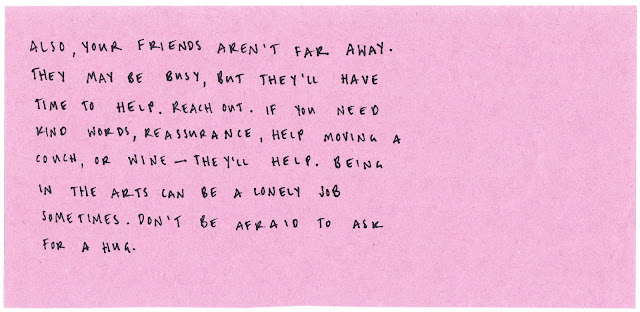 ALSO, YOUR FRIENDS AREN'T FAR AWAY.
THEY MAY BE BUSY, BUT THEY'LL HAVE
TIME TO HELP. REACH OUT. IF YOU NEED
KIND WORDS, REASSURANCE, HELP MOVING A
COUCH, OR WINE — THEY'LL HELP. BEING
IN THE ARTS CAN BE A LONELY JOB
SOMETIMES. DON'T BE AFRAID TO ASK
FOR A HUG.